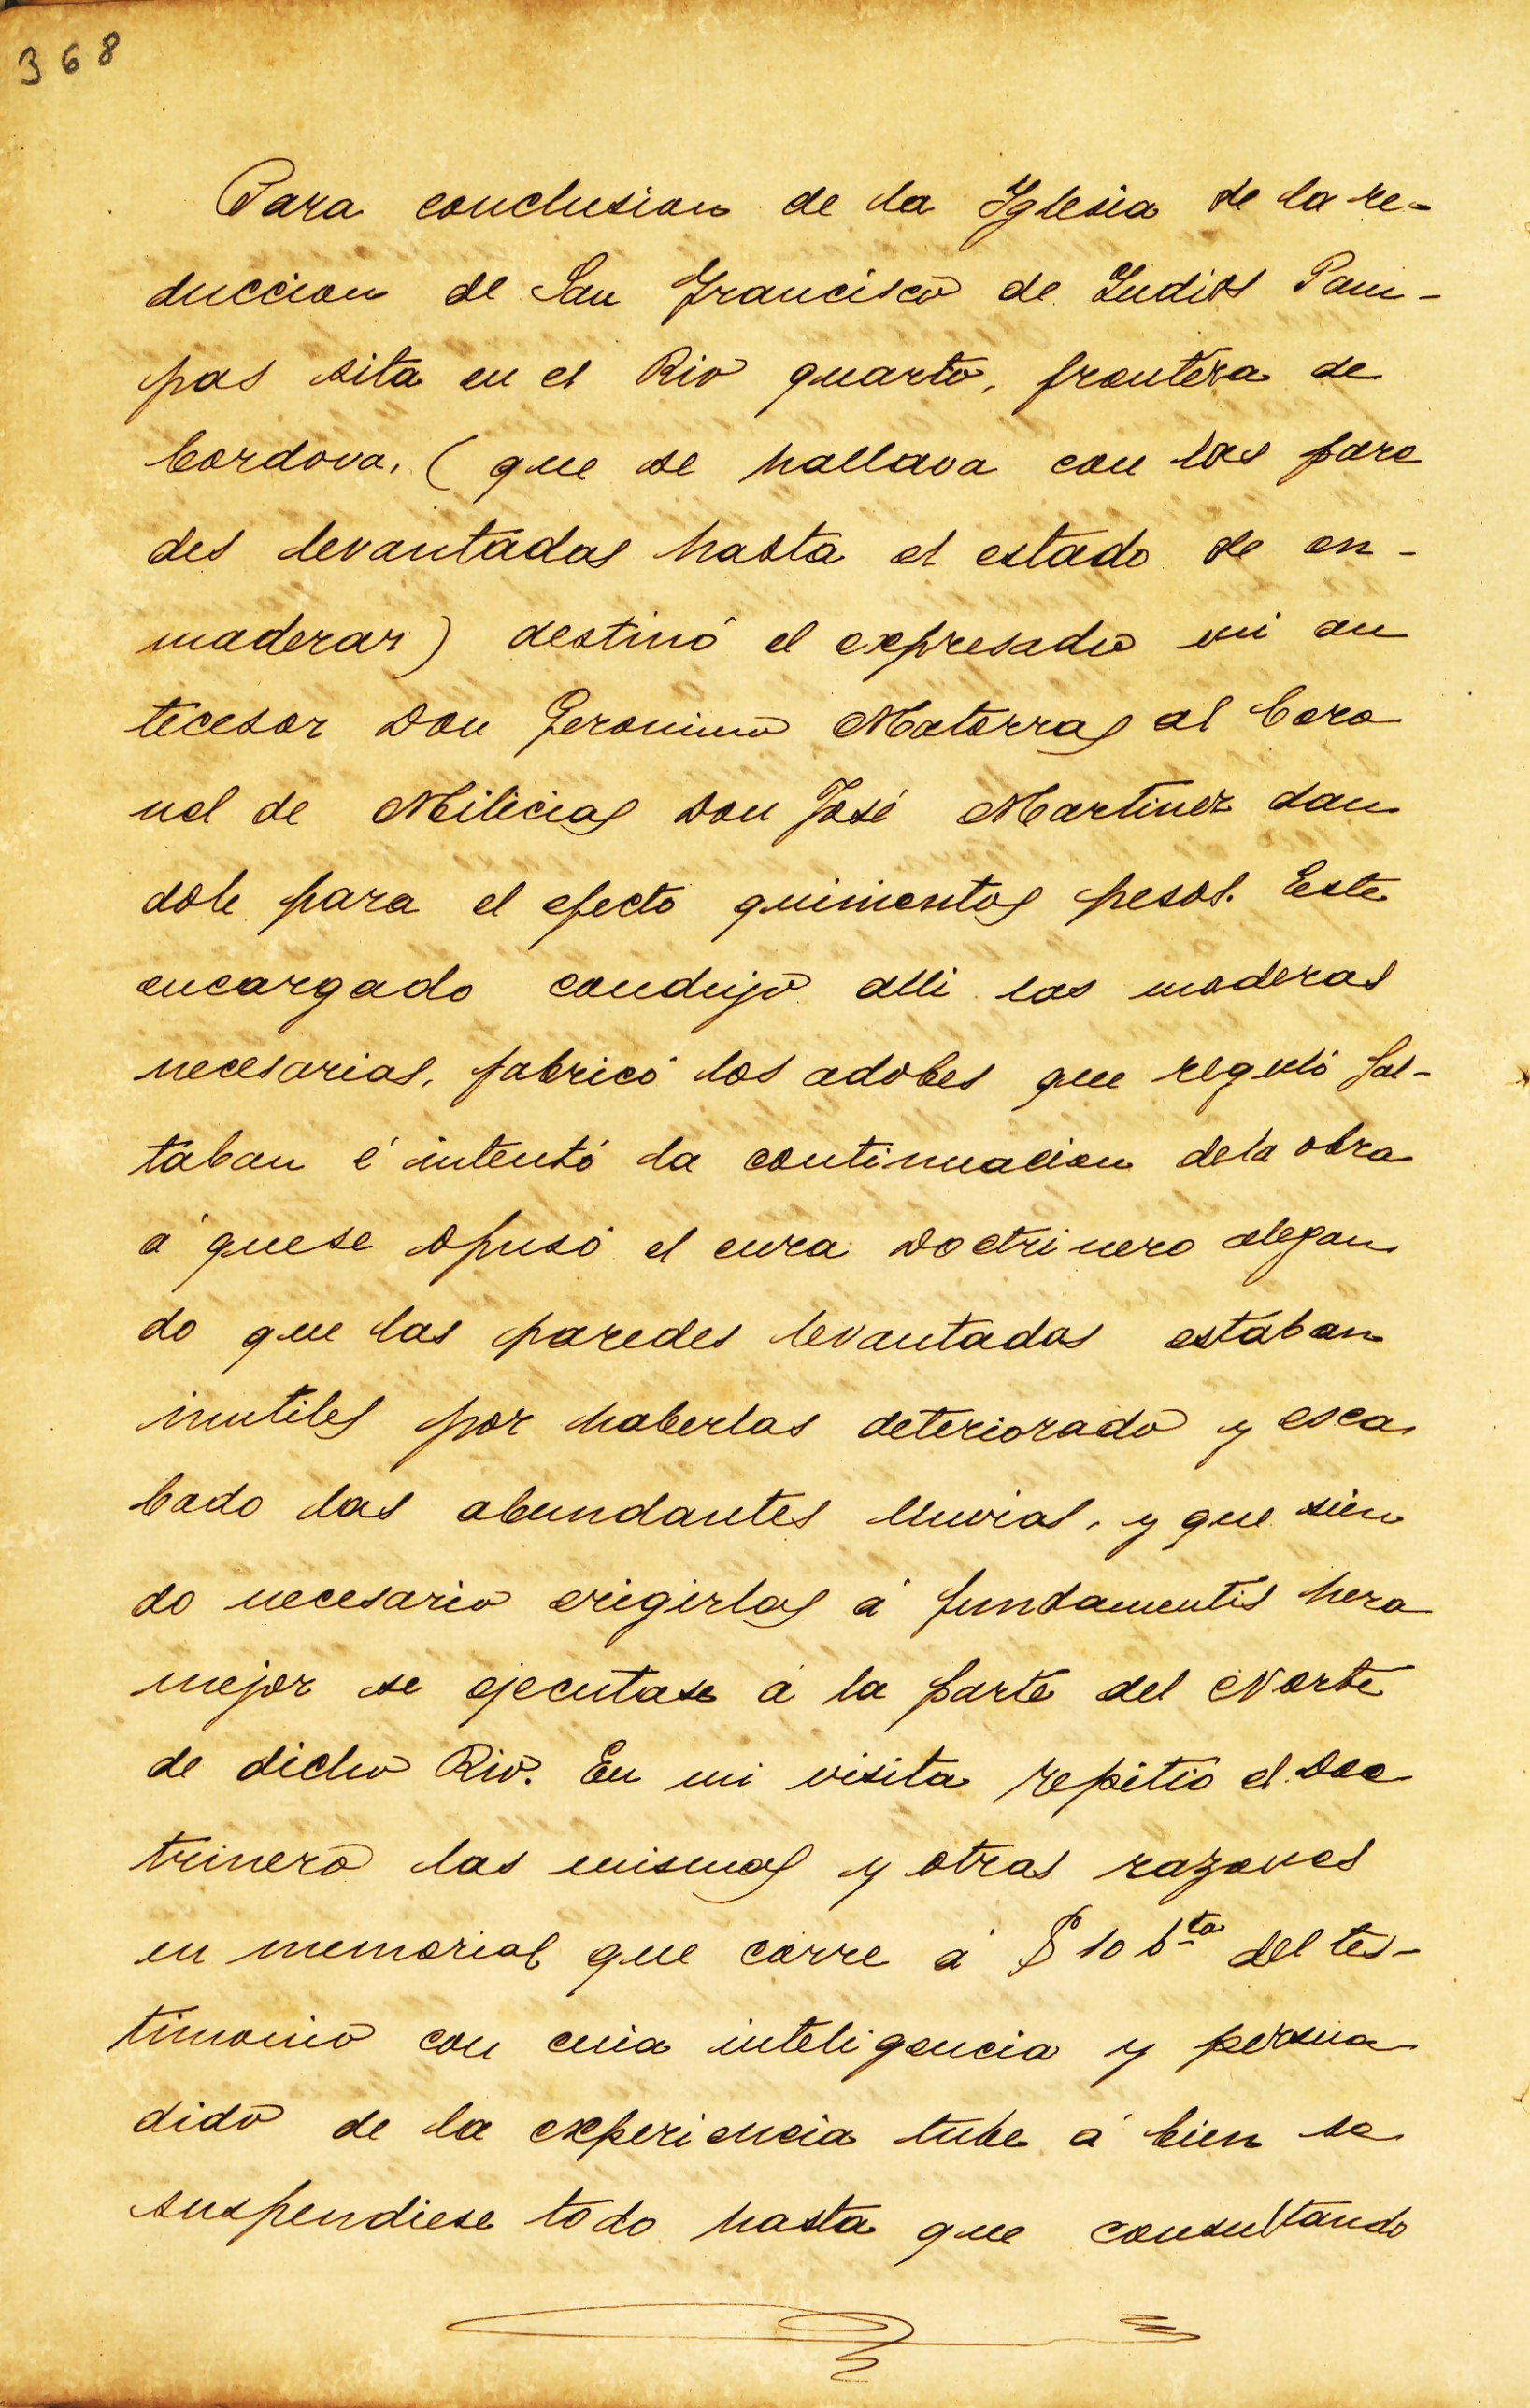 368
Para conclusion de la Iglesia de la re-
duccion de San Francisco de Indios Pam-
pas sita en el Rio quarto, frontera de
Cordova, (que se hallava con las pare
des levantadas hasta el estado de en-
maderar) destinó el expresado mi an
tecesor Don Geronimo Matorras al Coro
nel de Milicias Don José Martinez dan
dole para el efecto quinientos pesos. Este
encargado condujo alli las maderas
necesarias, fabricó los adobes que reguló fal-
taban é intentó la continuacion dela obra
á quese opusó el cura Doctrinero alegan
do que las paredes levantadas estaban
inutiles por haberlas deteriorado y esca
bado las abundantes lluvias, y que sien
do necesario erigirlas á fundamentis hera
mejor se ejecutase á la parte del Norte
de dicho Rio. En mi visita repitió el Doc
trinero las mismas y otras razones
en memorial que corre á 10 bta del tes-
timonio con cuia inteligencia y persua
dido de la experiencia tube á bien se
suspendiese todo hasta que consultando